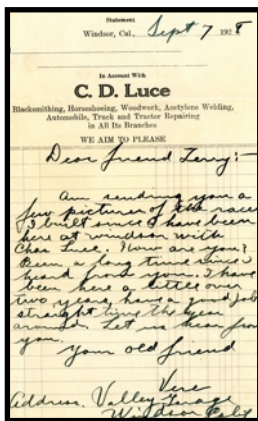 Statement
Windsor, Cal., Sept 7 1928
In Account With
C. D. Luce
Blacksmithing, Horseshoeing, Woodwork, Acetylene Welding,
Automobile, Truck and Tractor Repairing
in All Its Branches
WE AIM TO PLEASE
Dear friend :-
Am sending you a
few pictures of the race
I built since I have been
here at windsor with
Chas Luce. How are you?
Been a long time since I
heard from you. I have
been here a little over
two years, have a good job
straight time the year
around. Let us hear from
you.
Your old friend
Vere
Address. Valley Garage
Windsor Calif